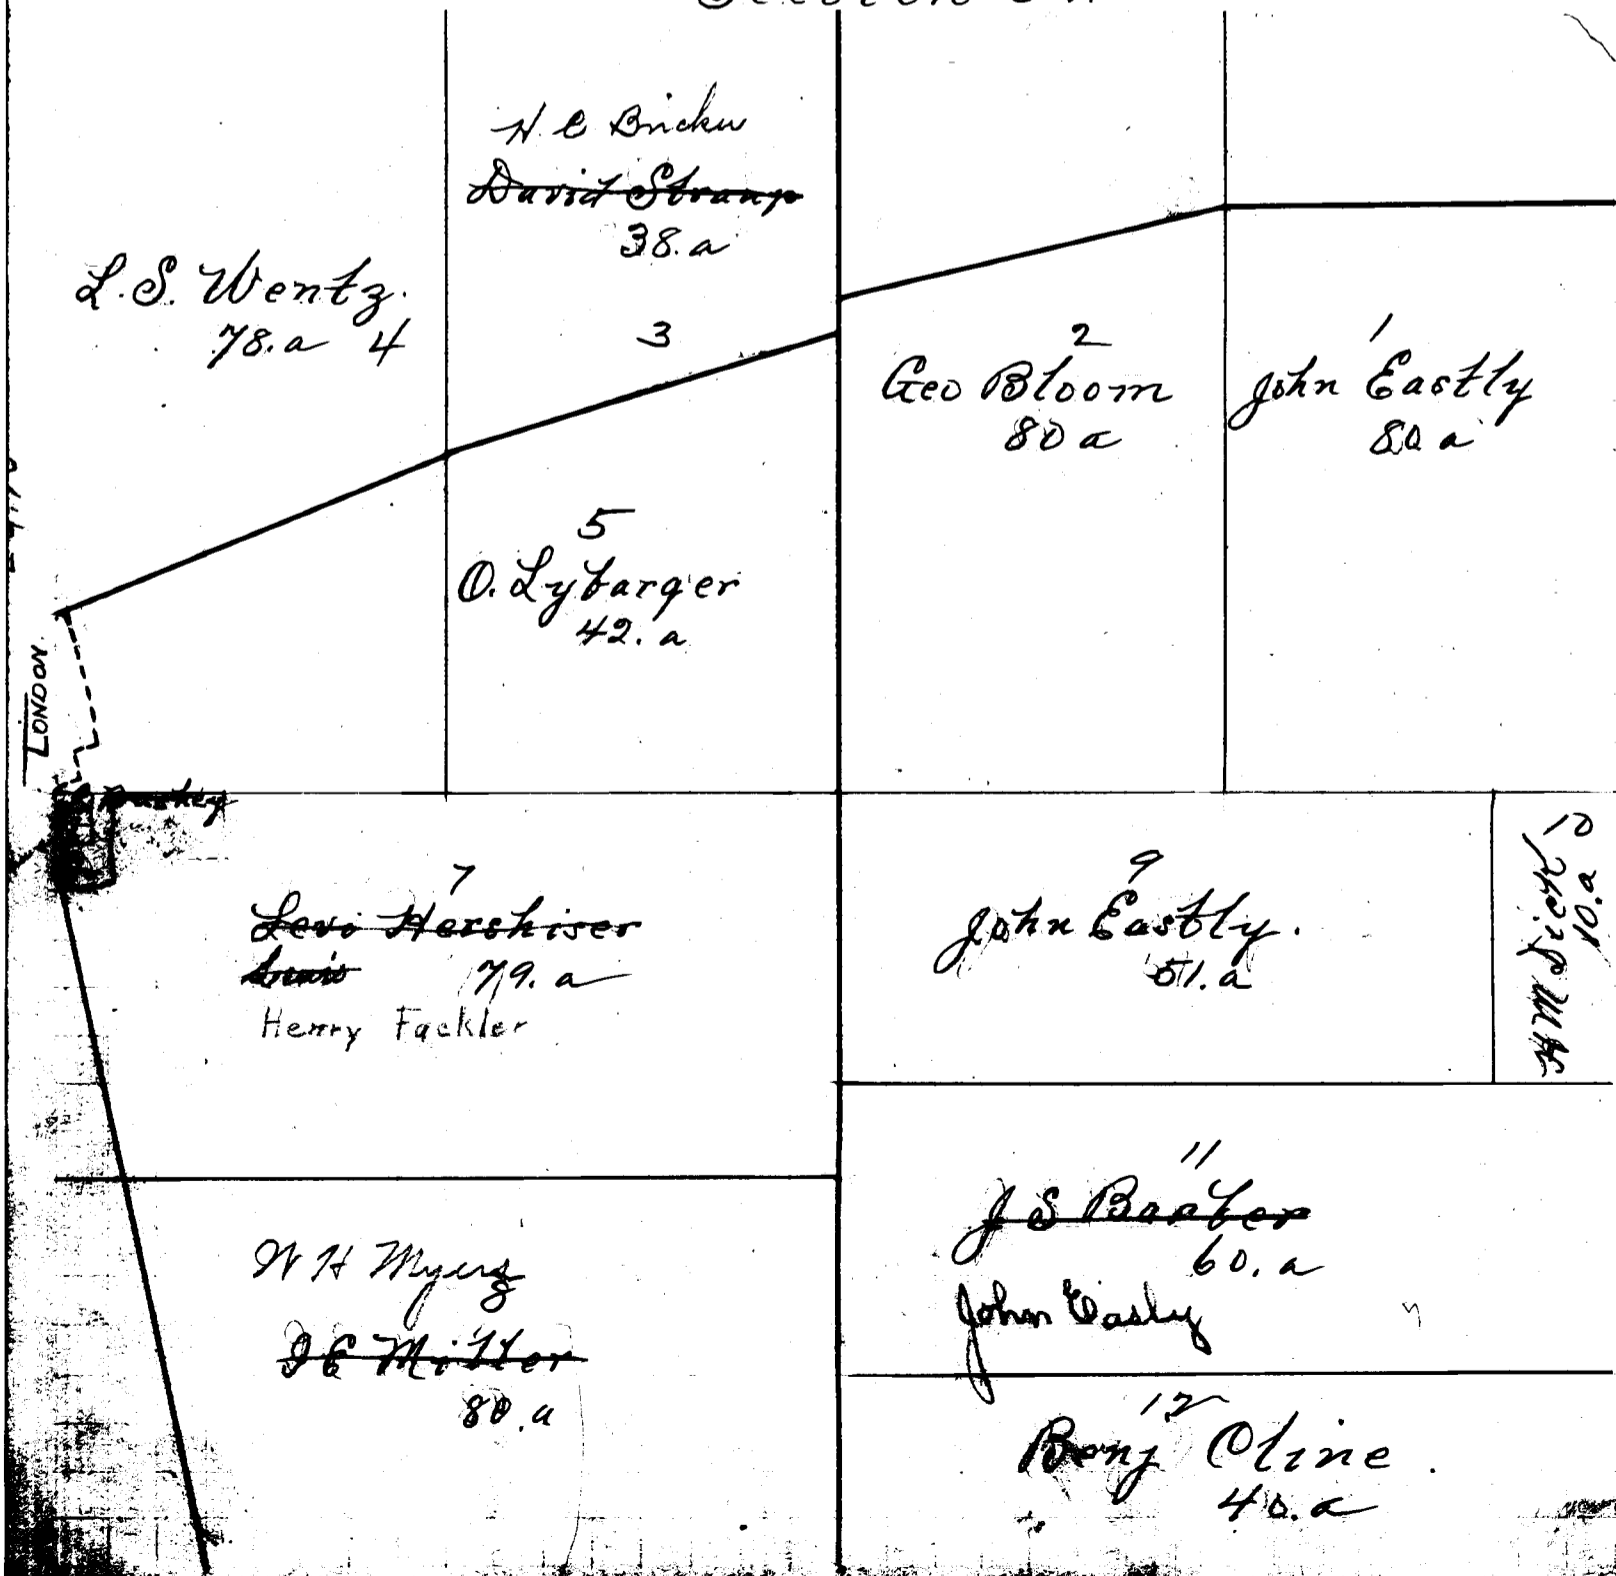 Section
H. C Bricker
David Stramp
38.a
L.S. Wentz.
78.a 4
3
2
Geo Bloom
80 a
1
John Eastly
80 a
5
O. Lybarger
42. a
LONDON.
7
Levi Hershiser
79. a
Henry Fackler
9
John Eastly.
51.a
H M Dick 10
10.a
W H Myers
J E Miller
80.a
11
J S Barber
60. a
John Easly
12
Benj Cline
40.a